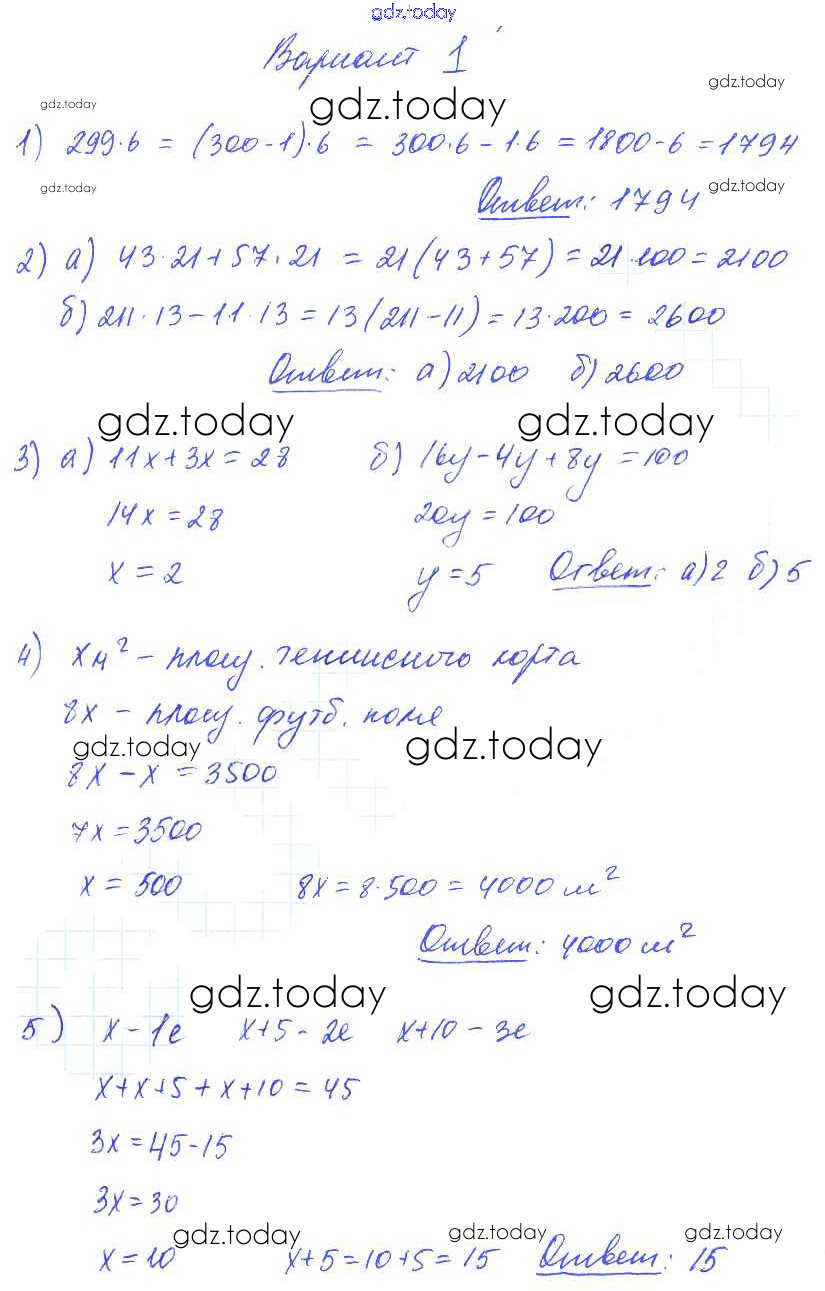 gdz.today
Вариант 1
gdz.today
gdz.today gdz.today
1) 299·6 = (300-1)·6 = 300·6 - 1·6 = 1800-6 = 1794
gdz.today gdz.today
Ответ: 1794
2) а) 43·21+57·21 = 21(43+57) = 21·100 = 2100
б) 211·13-11·13 = 13(211-11) = 13·200 = 2600
Ответ: а) 2100 б) 2600
gdz.today gdz.today
3) а) 11x+3x=28 б) 16y-4y+8y=100
14x=28 20y=100
x=2 y=5 Ответ: а) 2 б) 5
4) x м² - площ. теннисного корта
8x - площ. футб. поля
gdz.today gdz.today
8x-x=3500
7x=3500
x=500 8x=8·500=4000 м²
Ответ: 4000 м²
gdz.today gdz.today
5) x-1е x+5-2е x+10-3е
x+x+5+x+10=45
3x=45-15
3x=30
gdz.today gdz.today gdz.today
x=10 x+5=10+5=15 Ответ: 15